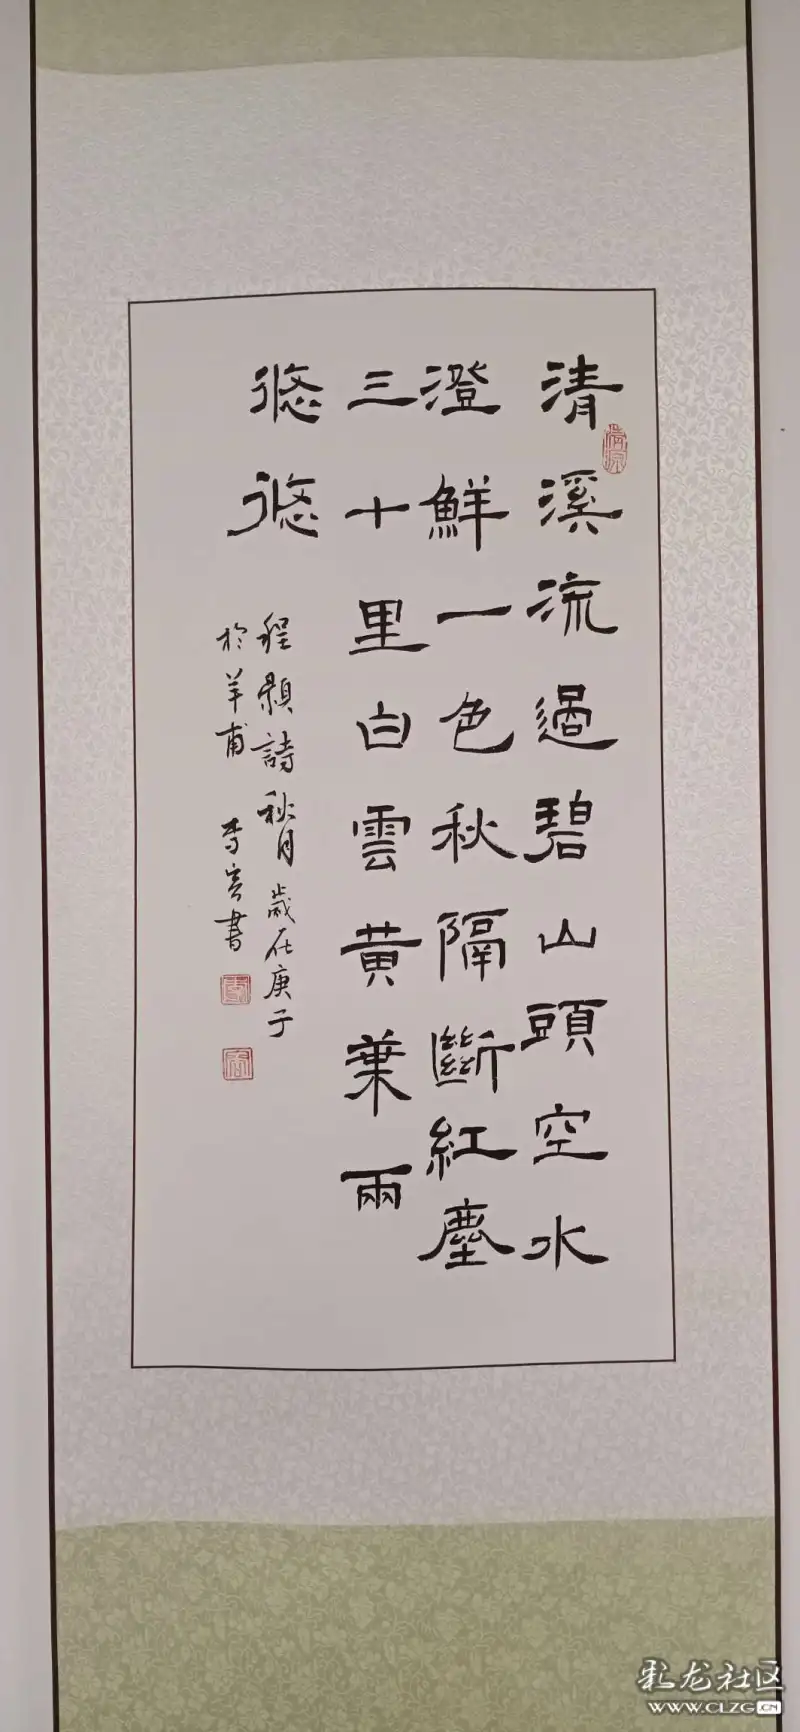 清溪流過碧山頭空水
澄鮮一色秋隔斷紅塵
三十里白雲黄葉兩
悠悠
程顥詩秋月歲在庚子
於羊甫 書
彩龙社区
WWW.CLZG.CN